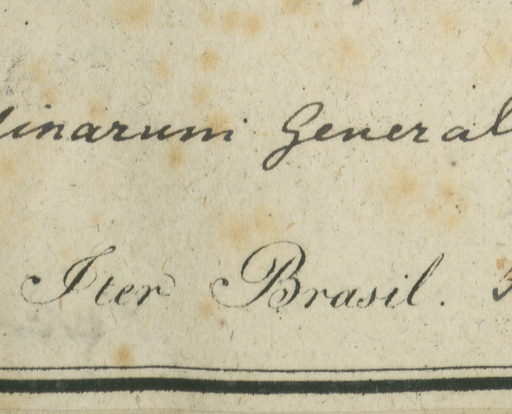 inarum General
Iter Brasil.